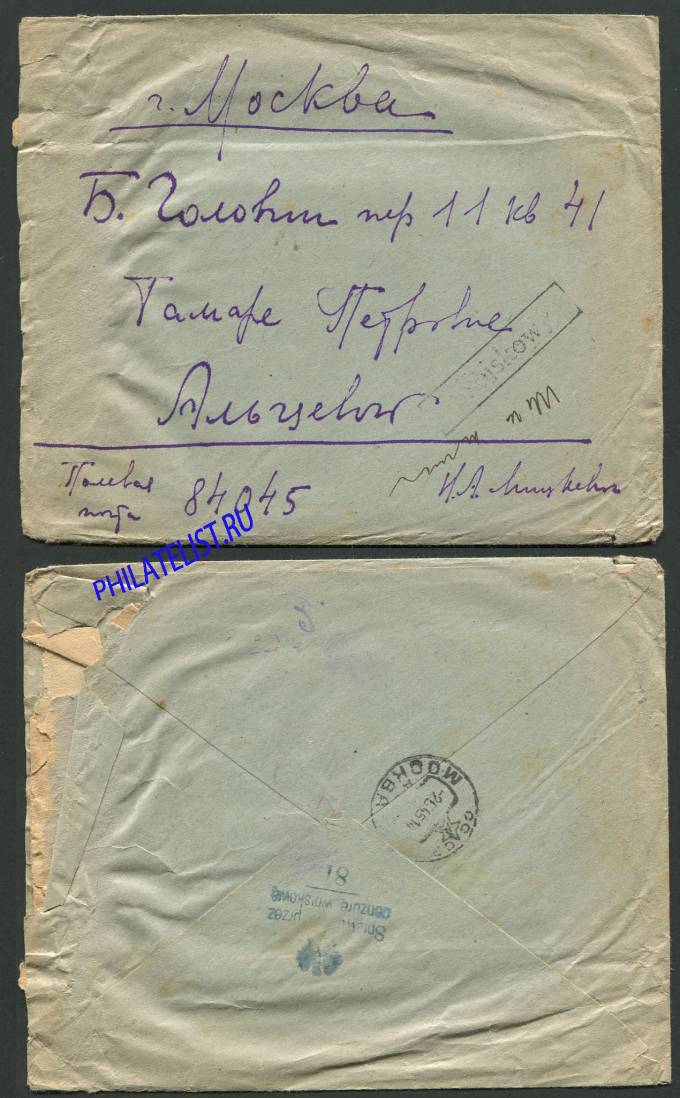 г. Москва
Б. Головин пер 11 кв 41
Тамаре Петровне
Альцевой
Полевая
почта
84045
PHILATELIST.RU
МОСКВА
przez
cenzurę wojskową
81